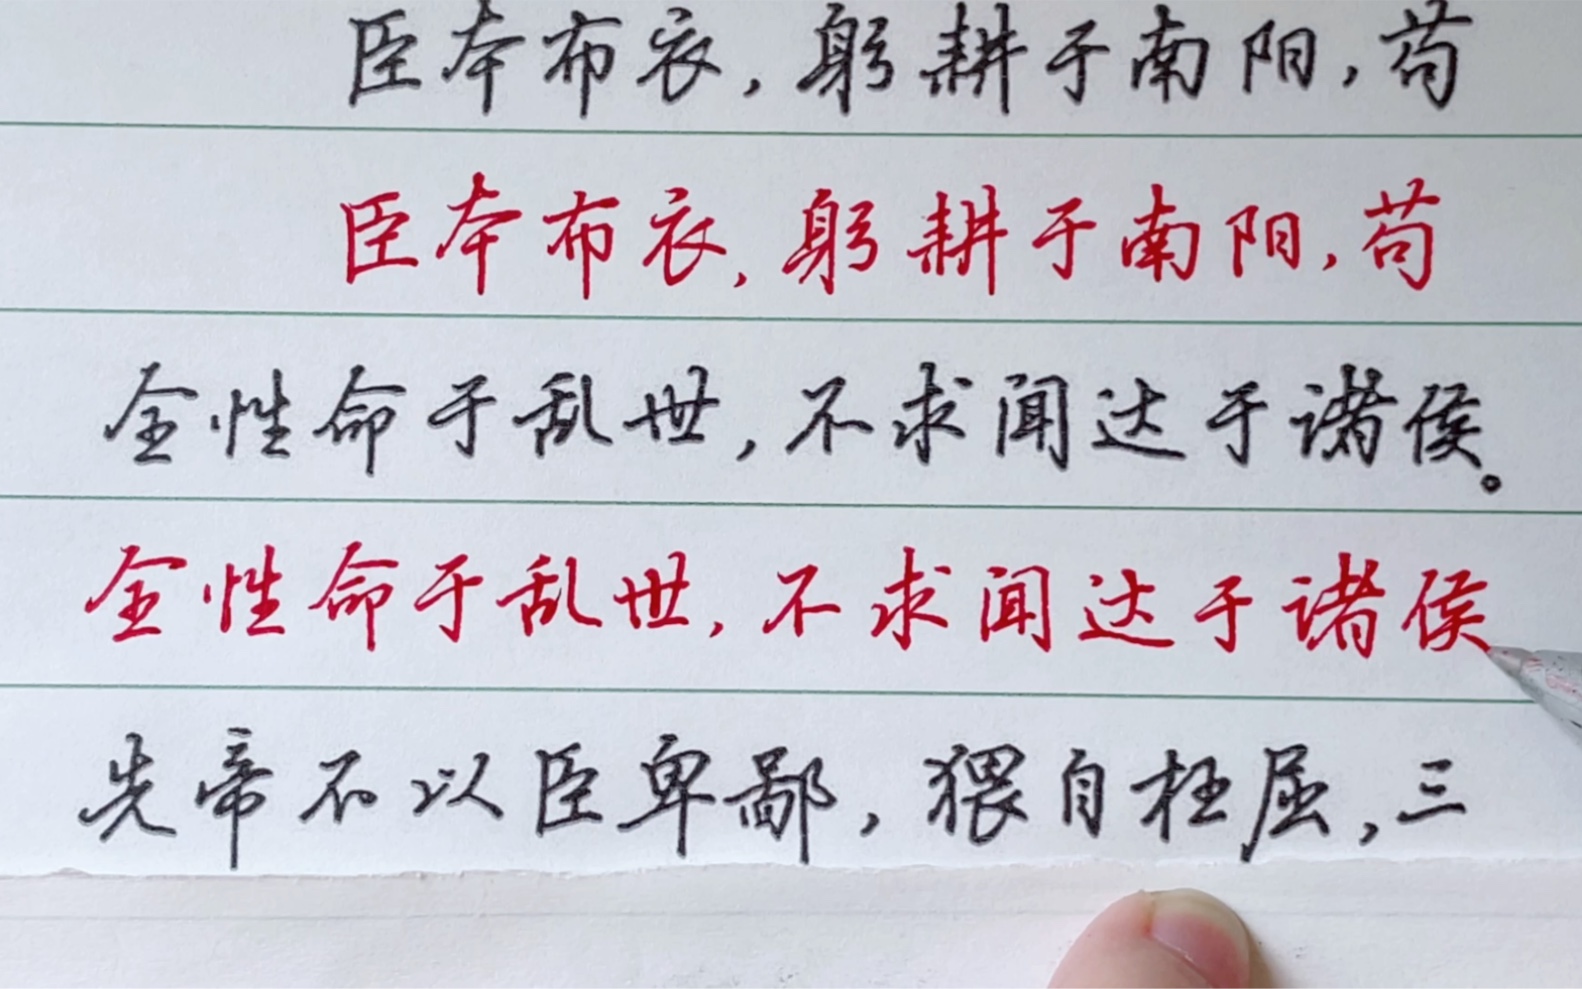 臣本布衣，躬耕于南阳，苟
臣本布衣，躬耕于南阳，苟
全性命于乱世，不求闻达于诸侯。
全性命于乱世，不求闻达于诸侯
先帝不以臣卑鄙，猥自枉屈，三